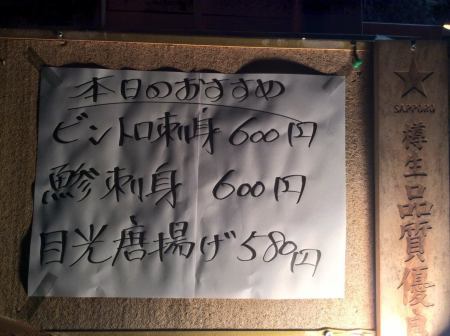 本日のおすすめ
ビントロ刺身 600円
鯵刺身 600円
目光唐揚げ 580円
SAPPORO
樽生品質優良